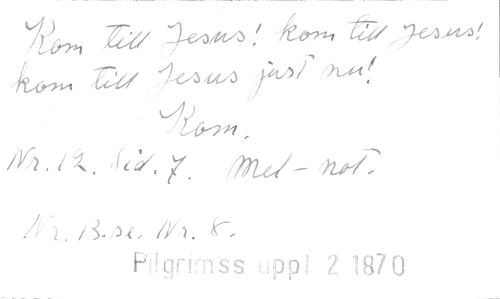 Kom till Jesus! kom till Jesus!
kom till Jesus just nu!
Kom.
Nr. 12. Sid. 7. Mel-not.
Nr. 13. se. Nr. 8.
Pilgrimss uppl 2 1870